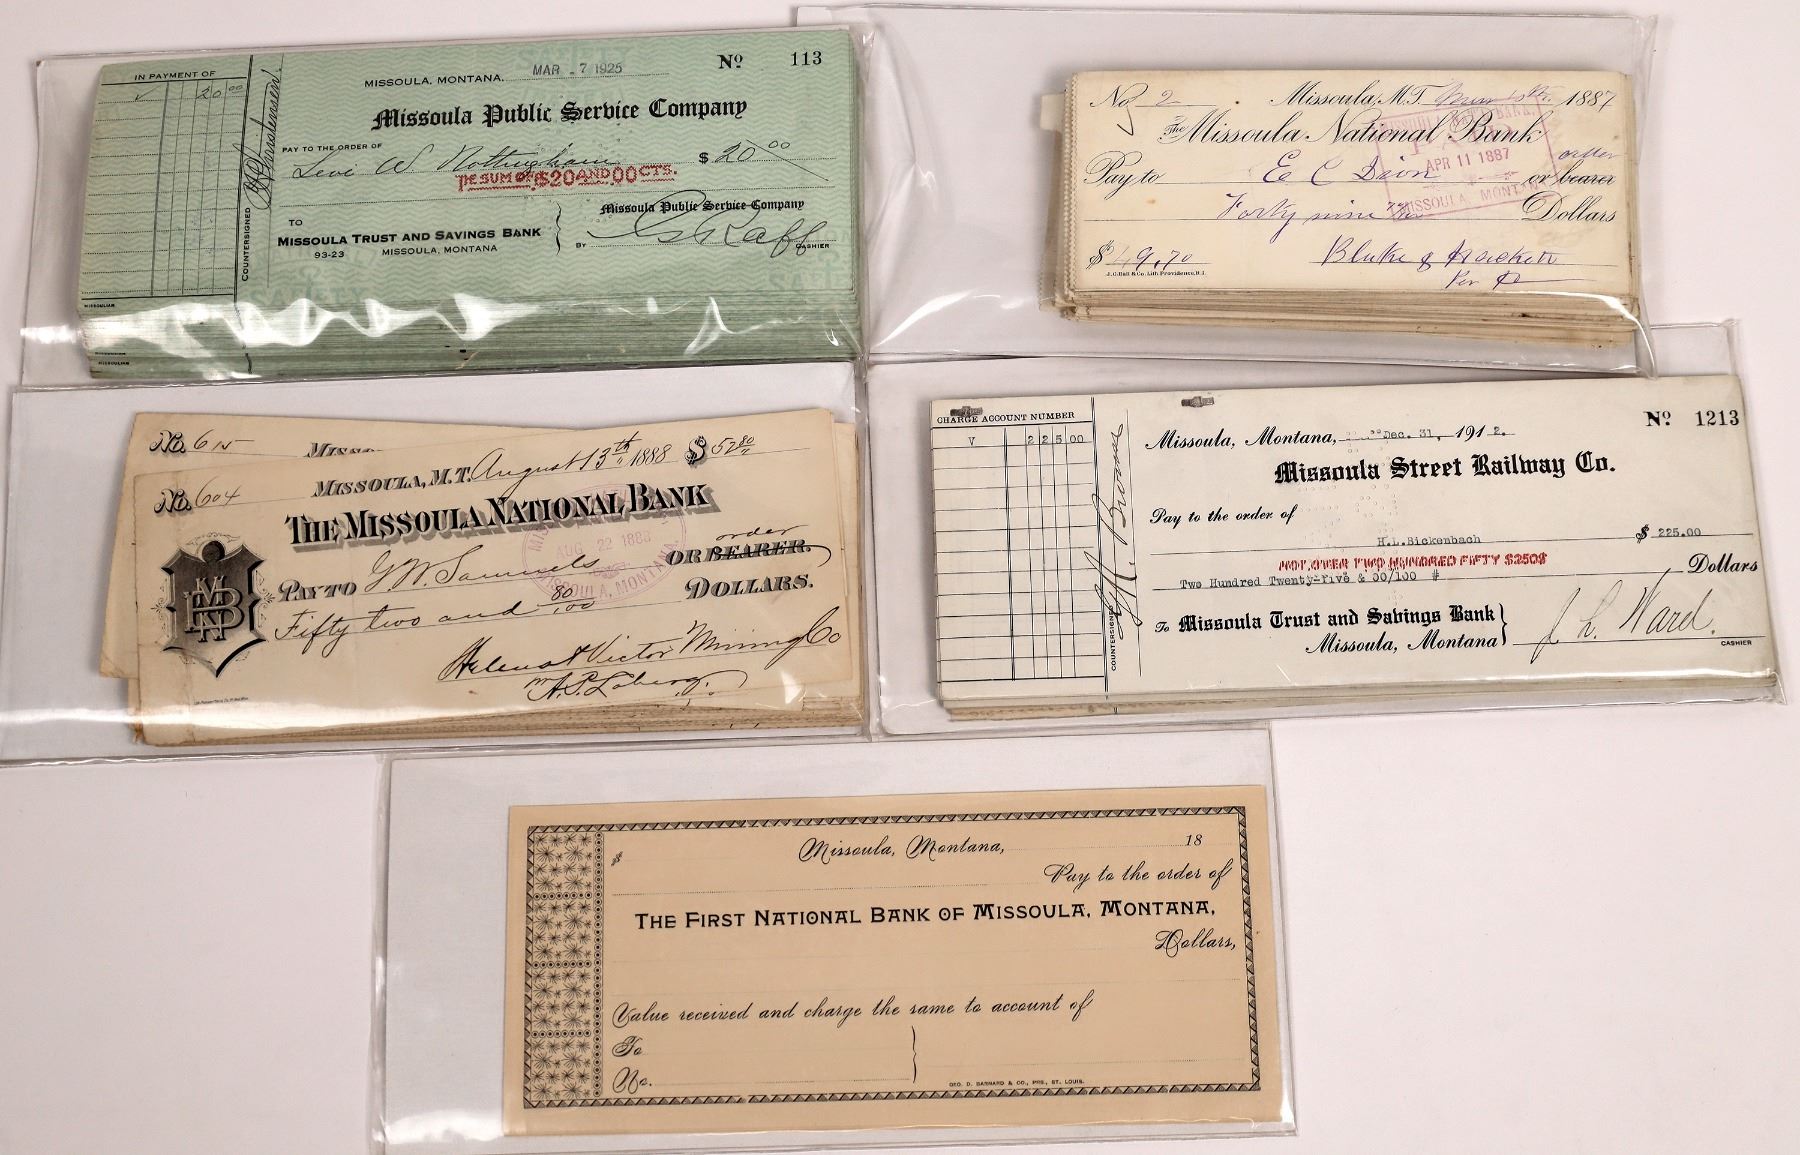 IN PAYMENT OF
20 00
COUNTERSIGNED
MISSOULA, MONTANA, MAR -7 1925 No 113
Missoula Public Service Company
PAY TO THE ORDER OF
Levi W. Nottingham $ 20 00
THE SUM OF $20 AND 00 CTS.
Missoula Public Service Company
TO
MISSOULA TRUST AND SAVINGS BANK
93-23 MISSOULA, MONTANA
BY CASHIER
SAFETY
MISSOULIAN
MISSOULIAN
No. 2 Missoula, M.T. 1887
The Missoula National Bank
PAID
APR 11 1887
MISSOULA, MONTANA
Pay to E C Dion or bearer
order
Forty nine 70/100 Dollars
$ 49.70
J.C. Hall & Co. Lith. Providence, R.I.
No. 615
No. 604 MISSOULA, M.T. August 13th 1888 $ 52 80
THE MISSOULA NATIONAL BANK
AUG 22 1888
MISSOULA, MONTANA
MNB
PAY TO G W. Samuels OR BEARER.
order
Fifty two and 80/100 DOLLARS.
Helena & Victor Mining Co
CHARGE ACCOUNT NUMBER
V 225 00
COUNTERSIGNED
No 1213
Missoula, Montana, Dec. 31, 1912.
Missoula Street Railway Co.
Pay to the order of
H.L. Bickenbach $ 225.00
NOT OVER TWO HUNDRED FIFTY $250$
Two Hundred Twenty-five & 00/100 # Dollars
To Missoula Trust and Savings Bank
Missoula, Montana
J. L. Ward.
CASHIER
$ Missoula, Montana, 18
Pay to the order of
THE FIRST NATIONAL BANK OF MISSOULA, MONTANA,
Dollars,
Value received and charge the same to account of
To
No.
GEO. D. BARNARD & CO., PRS., ST. LOUIS.